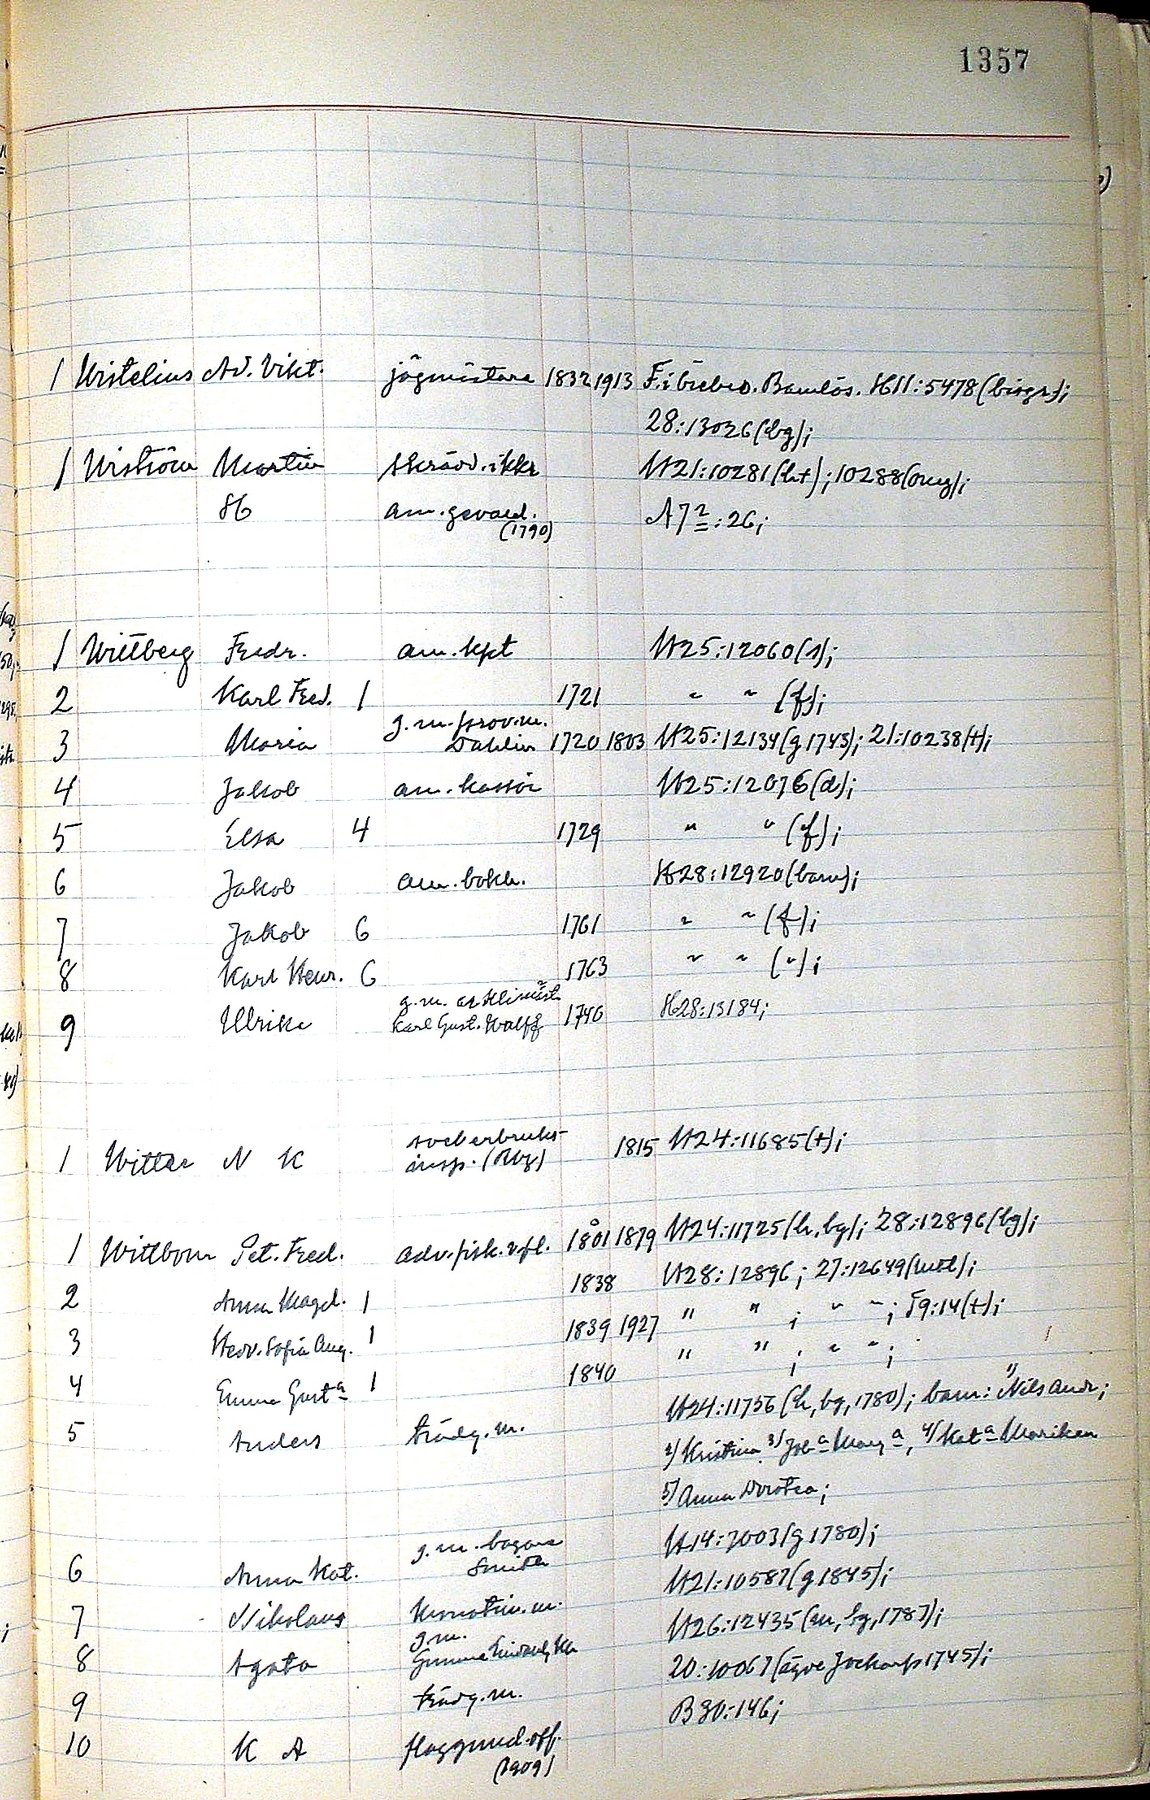 1357
1 Wistelius Ad. Vikt. jägmästare 1832 1913 F. i Örebro. Barnlös. H11:5478(biogr);
28:13026(bg);
1 Wiström Martin skrädd. ikkr H21:10281(ht); 10288(omg);
H am. gevald. A7 2:26;
(1790)
1 Wittberg Fredr. am. kpt H25:12060(1);
2 Karl Fred. 1 1721 " " (f);
g. m. prov. m.
3 Maria Dahlin 1720 1803 H25:12134(g 1743); 21:10238(†);
4 Jakob am. kassör H25:12076(d);
5 Elsa 4 1729 " " (f);
6 Jakob am. bokh. H28:12920(barn);
7 Jakob 6 1761 " " (f);
8 Karl Henr. 6 1763 " " (");
g. m.
9 Ulrika Karl Gust. Wolff 1740 H28:13184;
sockerbruks-
1 Witter N K insp. (Gbg) 1815 H24:11685(†);
1 Wittbom Pet. Fred. adv. fisk. v. fl. 1801 1879 H24:11725(h, bg); 28:12896(bg);
2 Anna Magd. 1 1838 H28:12896; 27:12649(mtl);
3 Hedv. Sofia Aug. 1 1839 1927 " " ; " "; F9:14(†);
4 Emma Gust a 1 1840 " " ; " ";
5 Anders trädg. m. H24:11756(h, bg, 1780); barn: 1) Nils Andr;
2) Kristina 3) Joh a Marg a, 4) Kat a Mariken
5) Anna Dorotea;
g. m. bagare
6 Anna Kat. Smith H14:7003(g 1780);
7 Nikolaus H21:10587(g 1845);
g. m.
8 Agata Gunnar H26:12435(m, bg, 1787);
9 trädg. m. 20:10067(ägde Jockarp 1745);
10 K A flaggund. off. B30:146;
(1909)